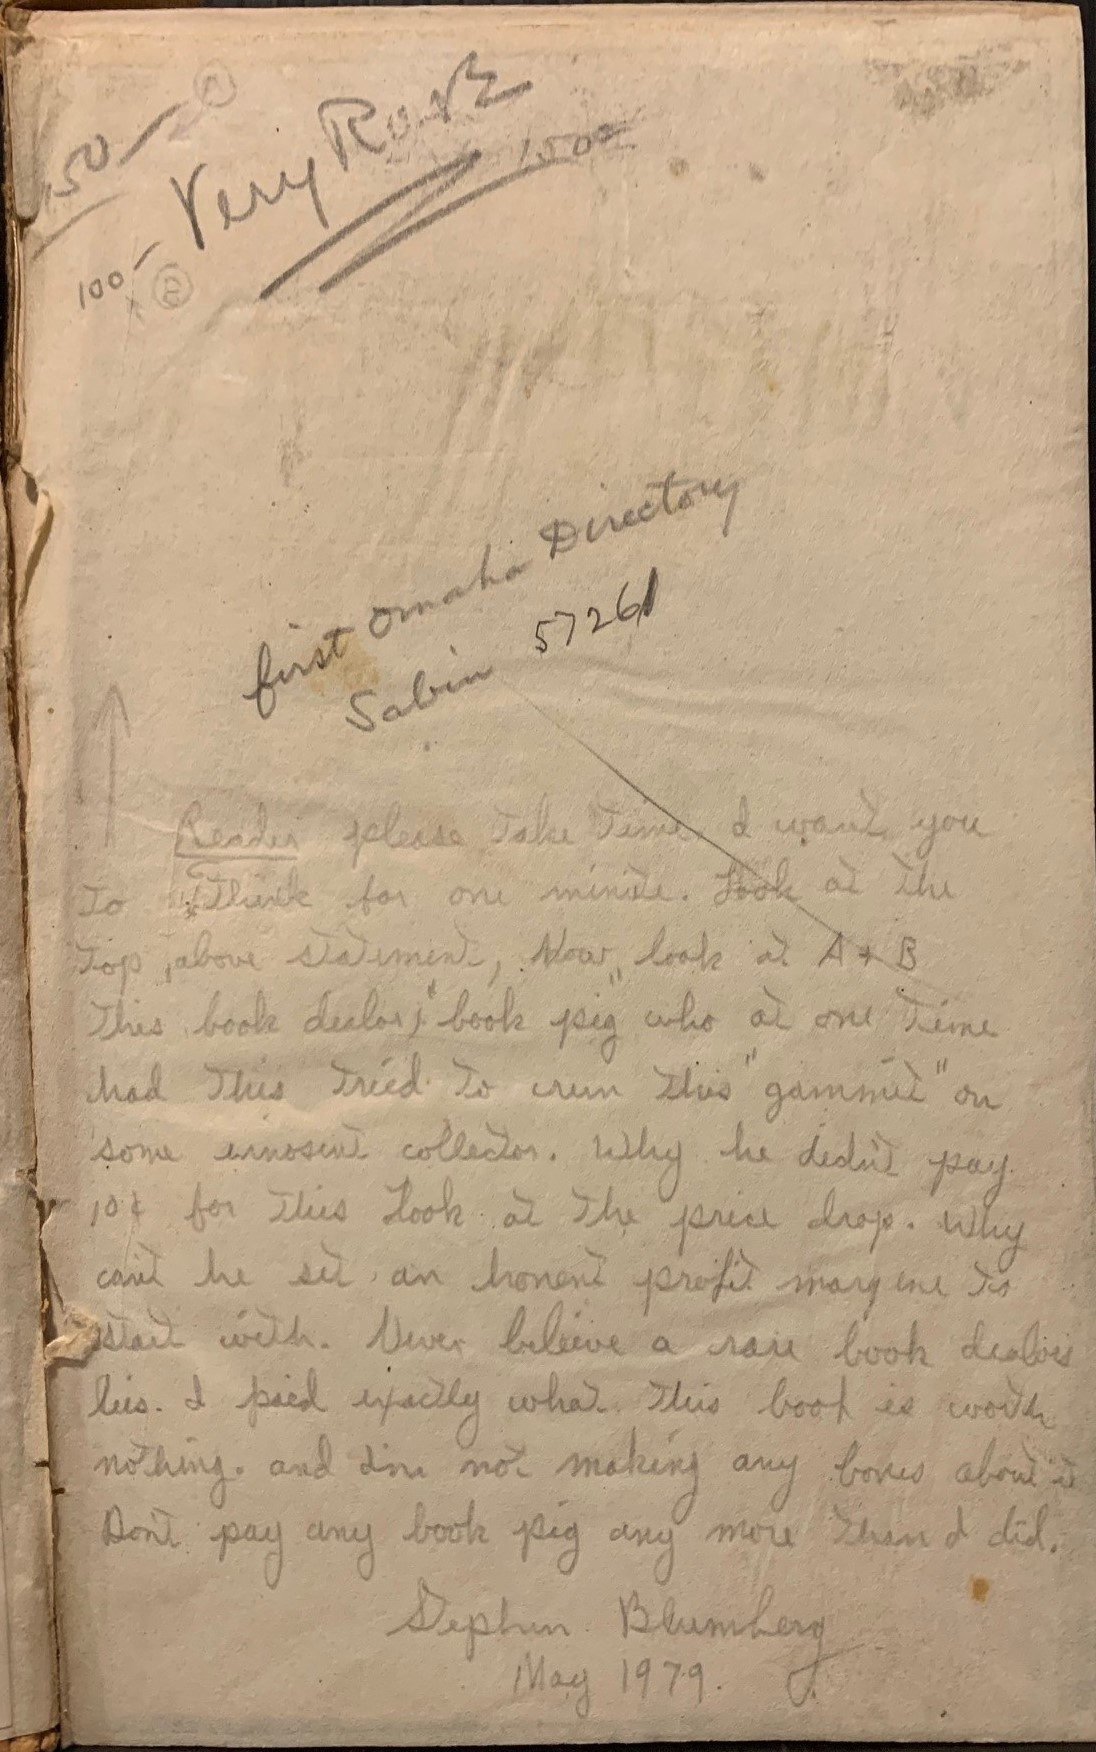 50-
Very Rare
100-
1500=
first Omaha Directory
Sabin 57261
Reader please Take Time, I want you
To Think for one minite. Look at The
Top, above statement, Now look at A + B
This book dealor, "book pig" who at one Time
had This Tried To run This "gammit" on
some innosent collector. Why he dedn't pay
10¢ for This Look at The price drop. Why
can't he set an honent profit margine To
start with. Never beleive a rare book dealors
lies. I paid exactly what This book is worth
nothing. and I'm not making any bones about it
Don't pay any book pig any more Than I did.
Stephen Blumberg
May 1979.